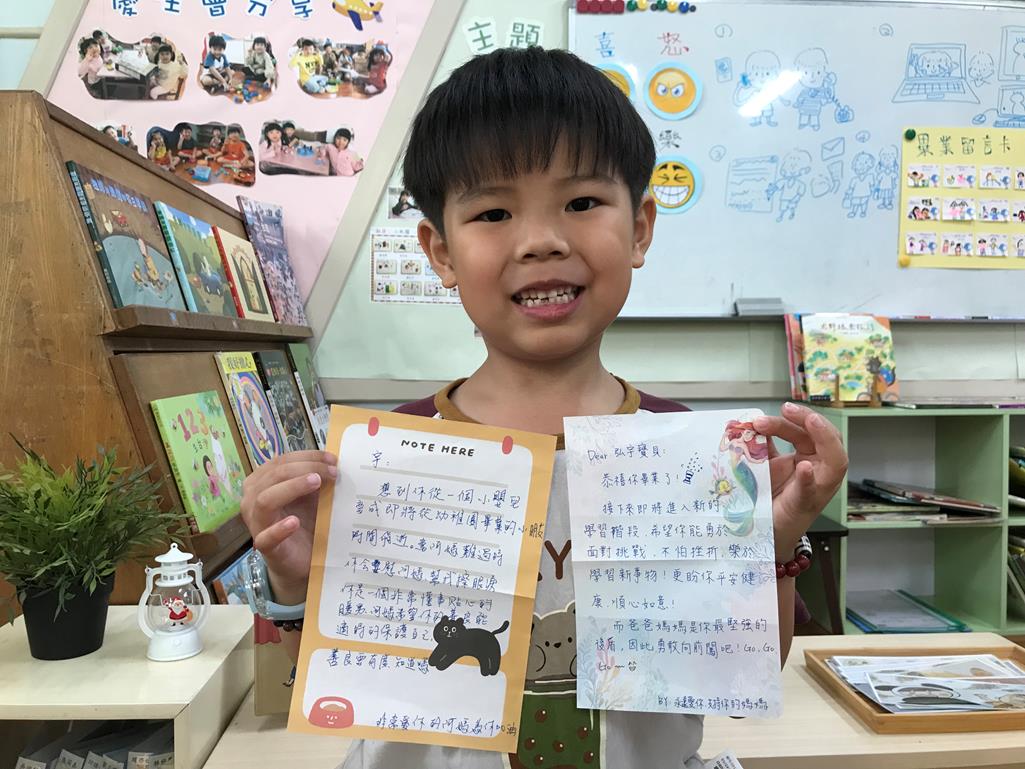 慶生會分享
主題
喜
怒
樂
畢業留言卡
我好擔心
123
NOTE HERE
宇:
想到你從一個小嬰兒
變成即將從幼稚園畢業的小朋友
時間飛逝。當阿嬤難過時
你會安慰阿嬤幫我擦眼淚
你是一個非常懂事貼心的
阿嬤希望你的善良能
適時的保護自己
善良要有度知道嗎
非常愛你的阿嬤為你加油
Dear 弘宇寶貝:
恭禧你畢業了!
接下來即將進入新的
學習階段,希望你能勇於
面對挑戰,不怕挫折,樂於
學習新事物!更盼你平安健
康、順心如意!
而爸爸媽媽是你最堅強的
後盾,因此勇敢向前闖吧!Go,Go,
Go~
BY 永遠愛你、支持你的媽媽